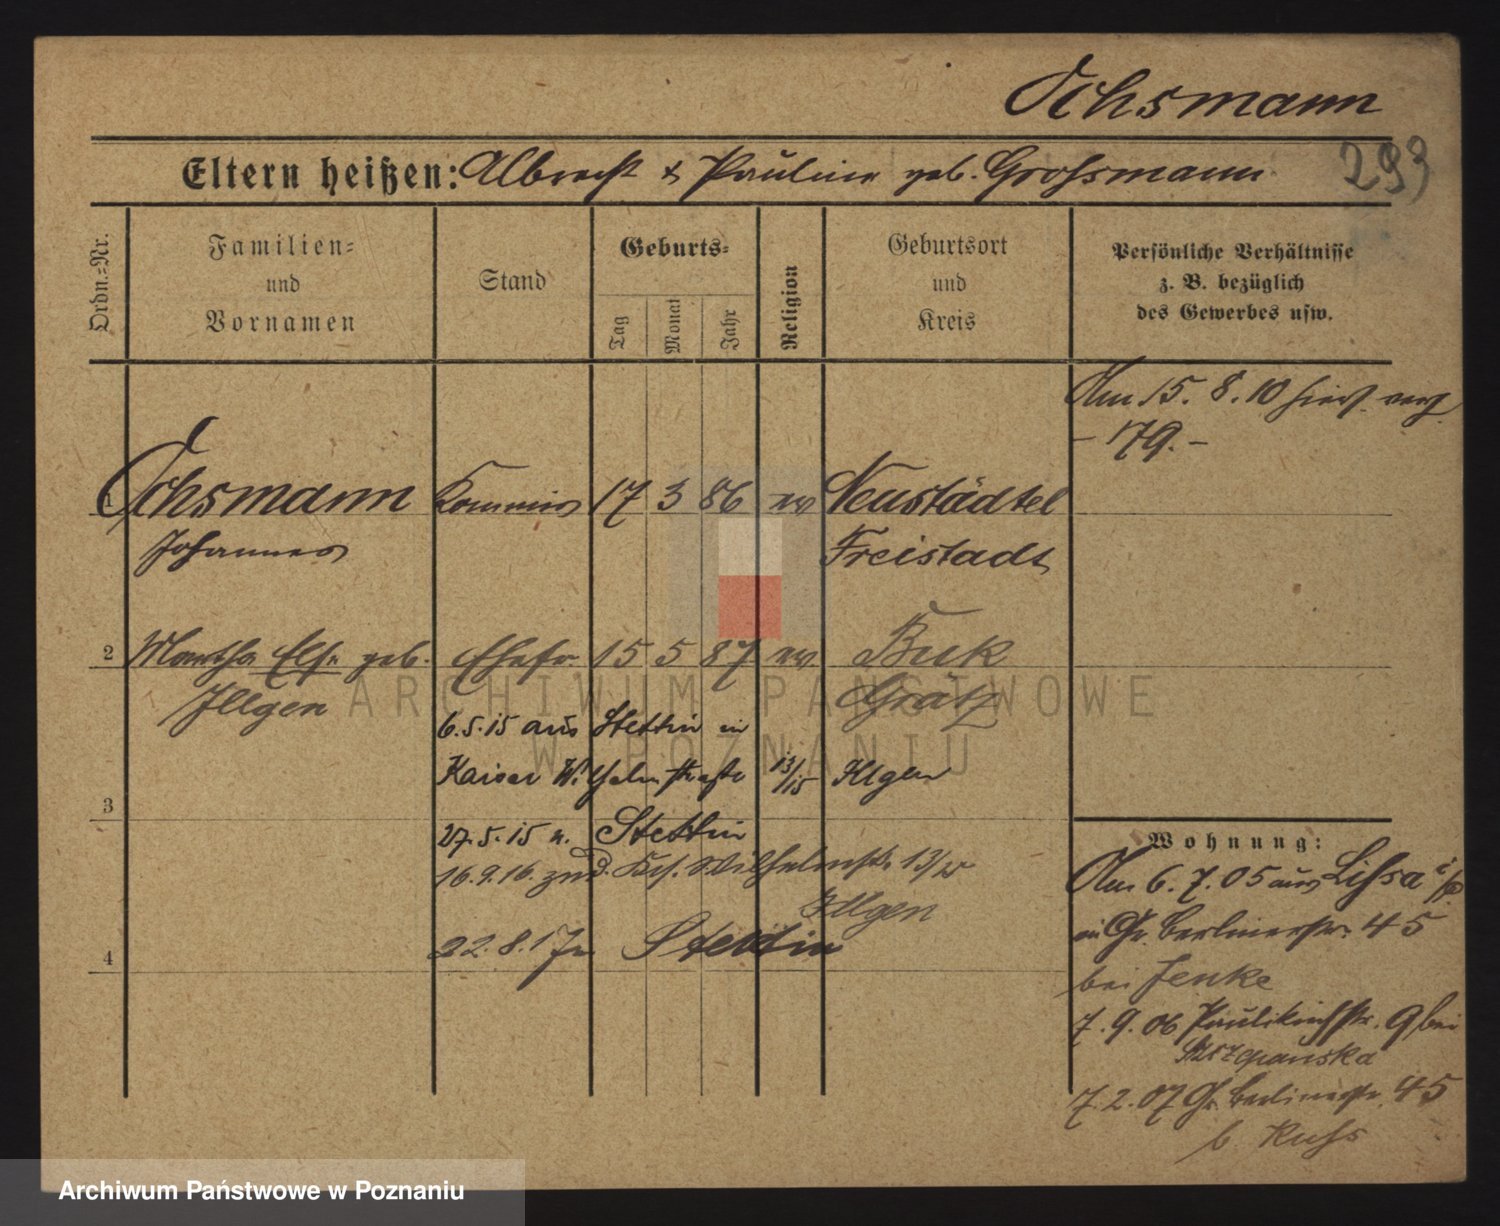 Ochsmann
Eltern heißen: Albrecht & Pauline geb. Grossmann
293
Ordn.=Nr.
Familien=
und
Vornamen
Stand
Geburts=
Tag
Monat
Jahr
Religion
Geburtsort
und
Kreis
Persönliche Verhältnisse
z. B. bezüglich
des Gewerbes usw.
Am 15. 8. 10 hier verz.
- 179. -
1 Ochsmann Kommis 17 3 86 ev Neustädtel
Johannes Freistadt
2 Martha Else geb. Ehefr. 15 5 87 ev Buk
Illgen Grätz
6.5.15 aus Stettin in
Kaiser Wilhelmstraße 13/15 Illgen
3
27.5.15 n. Stettin
16.9.16. Wilhelmstr. 13/15
Illgen
22.8.17 n Stettin
4
Wohnung:
Am 6. 7. 05 aus Lissa i/P.
in Gr. Berlinerstr. 45
bei Jenke
7. 9. 06 Paulikirchstr. 9 bei
Szczepanska
7. 2. 07 Gr. Berlinerstr. 45
b. Kuhs
ARCHIWUM PAŃSTWOWE
W POZNANIU
Archiwum Państwowe w Poznaniu